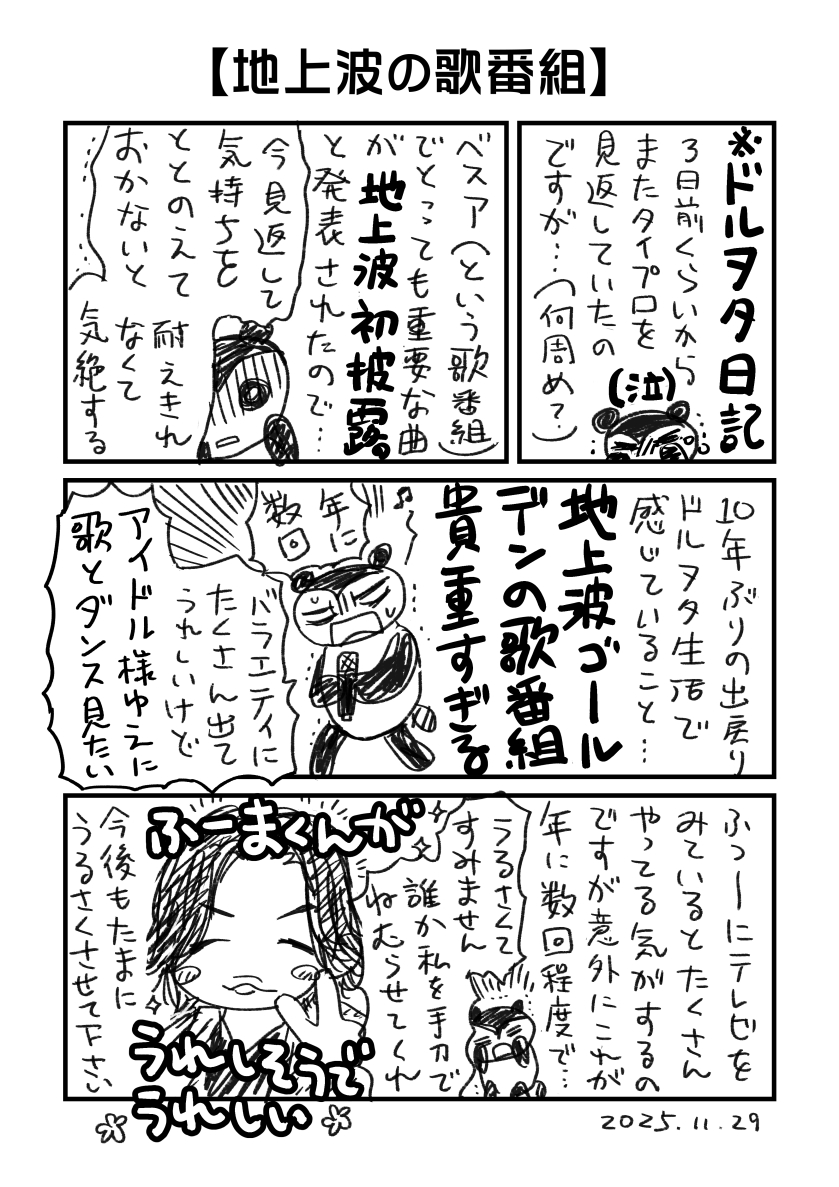 【地上波の歌番組】
※ドルヲタ日記
3日前くらいから
またタイプロを
見返していたの
ですが…(何周め?)
(泣)
ベスア(という歌番組)
でとっても重要な曲
が地上波初披露
と発表されたので…
今見返して
気持ちを
ととのえて
おかないと
耐えきれ
なくて
気絶する
10年ぶりの出戻り
ドルヲタ生活で
感じていること…
地上波ゴール
デンの歌番組
貴重すぎる
年に
数回
バラエティに
たくさん出て
うれしいけど
アイドル様ゆえに
歌とダンス見たい
ふつーにテレビを
みているとたくさん
やってる気がするの
ですが意外にこれが
年に数回程度で…
うるさくて
すみません
誰か私を手刀で
ねむらせてくれ
ふーまくんが
うれしそうで
うれしい
今後もたまに
うるさくさせて下さい
2025.11.29